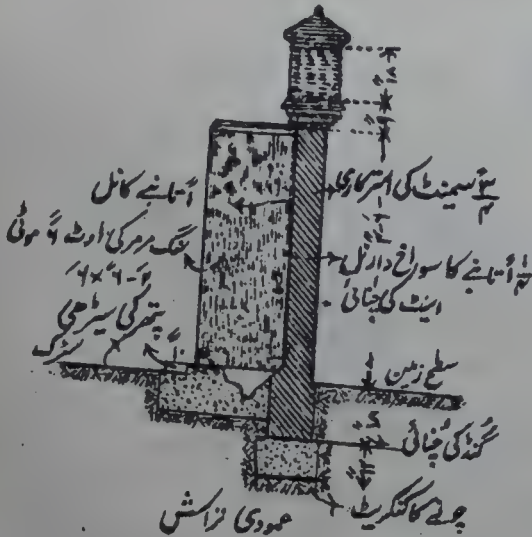 ۳/۴ سیمنٹ کی استرکاری
تانبے کا نل
سنگ مرمر کی اوٹ ۶ موٹی
۱/۲ تانبے کا سوراخ دار نل
اینٹ کی چنائی
پتھر کی سیڑھی
سڑک
سطح زمین
کی چنائی
چونے کا کنکریٹ
عمودی تراش